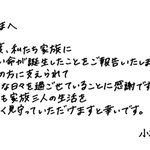 まへ
、私たち家族に
い命が誕生したことをご報告いたしま
の方に支えられて
な日々を過ごせていることに感謝です
も家族三人の生活を
く見守っていただけますと幸いです。
小